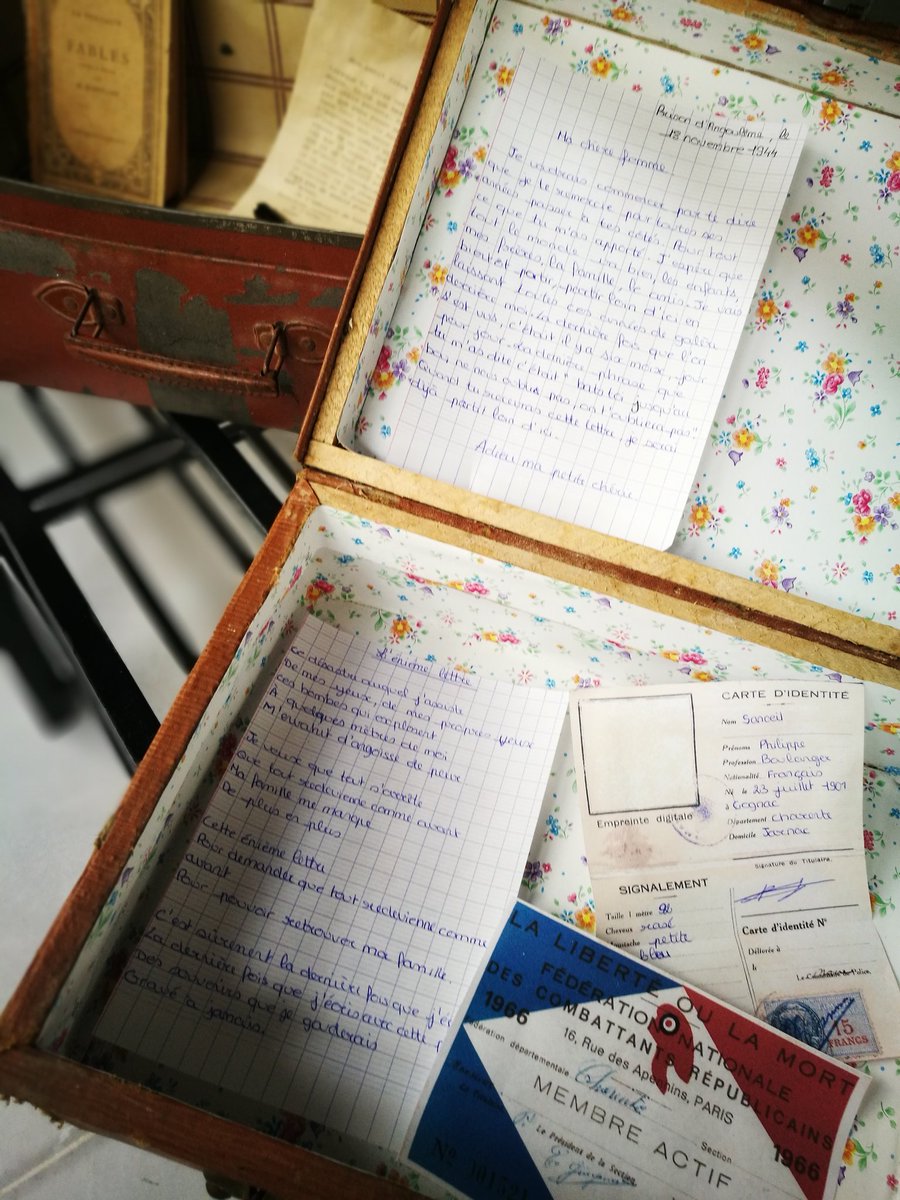 FABLES
Prison d'Angoulême, le
18 novembre 1944
Ma chère femme
Je voudrais commencer par te dire
que je te remercie par toutes ses
années passer à tes côtés. Pour tout
ce que tu m'as apporté. J'espère que
tout le monde va bien, les enfants,
mes frères, la famille, le amis. Je vais
bientôt partir, partir loin d'ici en
laissant toutes ces années de galère
derrière moi. La dernière fois que l'on
s'est vus, c'était il y a six mois, jour
pour jour. La dernière phrase que
tu m'as dite c'était "bats toi jusqu'au
bout, ne nous oublie pas, on t'oubliera pas".
Quand tu recevras cette lettre je serai
déjà partit loin d'ici.
Adieu ma petite chérie.
L'énième lettre
Ce désastre auquel j'assiste
De mes yeux, de mes propres yeux
Ces bombes qui explosent
À quelques mètres de moi
M'envahit d'angoisse de peur
Je veux que tout s'arrête
Que tout redevienne comme avant
Ma famille me manque
De plus en plus
Cette énième lettre
Pour demander que tout redevienne comme
avant
Pour pouvoir retrouver ma famille.
C'est sûrement la dernière fois que j'éc
La dernière fois que j'écris avec cette
Des souvenirs que je garderais
Gravé à jamais.
CARTE D'IDENTITÉ
Nom Sanceil
Prénoms Philippe
Profession Boulanger
Nationalité Français
Né le 23 juillet 1901
à Cognac
Département charente
Domicile Jarnac
Empreinte digitale
Signature du Titulaire
SIGNALEMENT
Taille 1 mètre 82
Cheveux rasé
Moustache petite
bleu
Carte d'identité N°
Délivrée à
le
Le Commissaire de Police
15
FRANCS
LA LIBERTÉ OU LA MORT
FÉDÉRATION NATIONALE
DES COMBATTANTS RÉPUBLICAINS
16, Rue des Apennins, PARIS
1966
1966
Fédération départementale Charente
Section
MEMBRE ACTIF
Le Président de la Section
N°